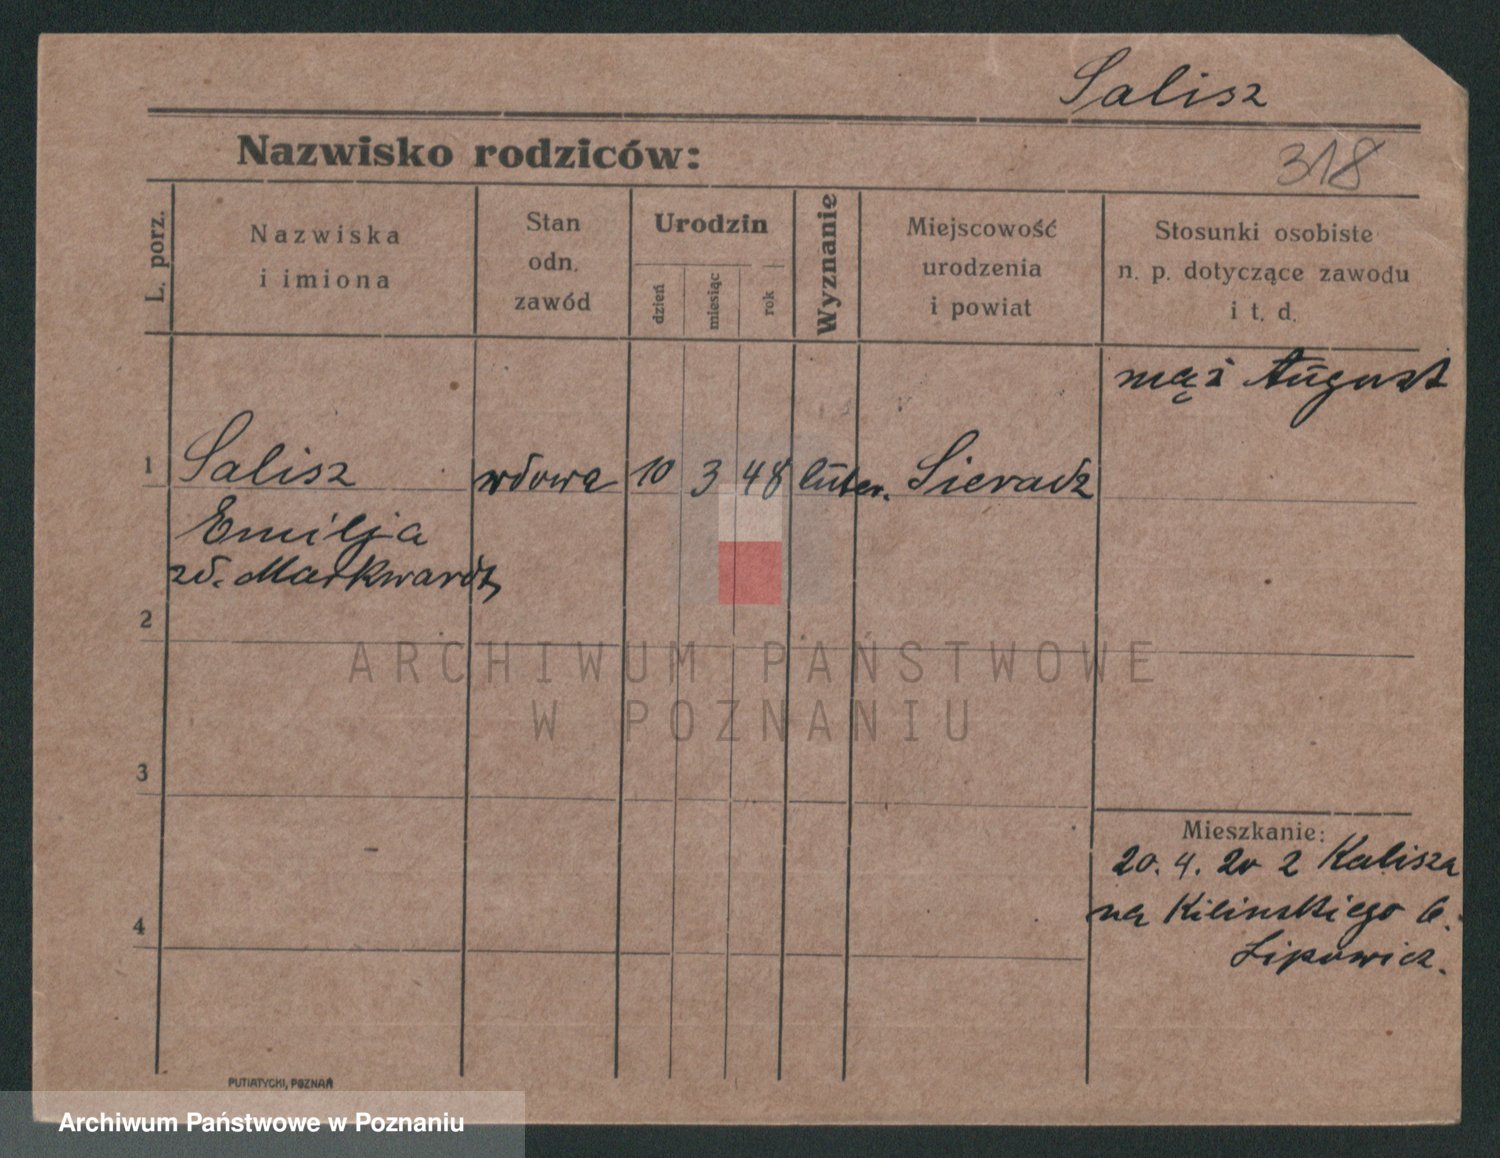 Salisz
Nazwisko rodziców:
318
L. porz.
Nazwiska
i imiona
Stan
odn.
zawód
Urodzin
dzień
miesiąc
rok
Wyznanie
Miejscowość
urodzenia
i powiat
Stosunki osobiste
n. p. dotyczące zawodu
i t. d.
mąż August
1 Salisz wdowa 10 3 48 luter. Sieradz
Emilja
zd. Markwardt
2
ARCHIWUM PAŃSTWOWE
W POZNANIU
3
Mieszkanie:
20. 4. 20 z Kalisza
na Kilinskiego 6.
Lipowicz.
4
PUTIATYCKI, POZNAŃ
Archiwum Państwowe w Poznaniu